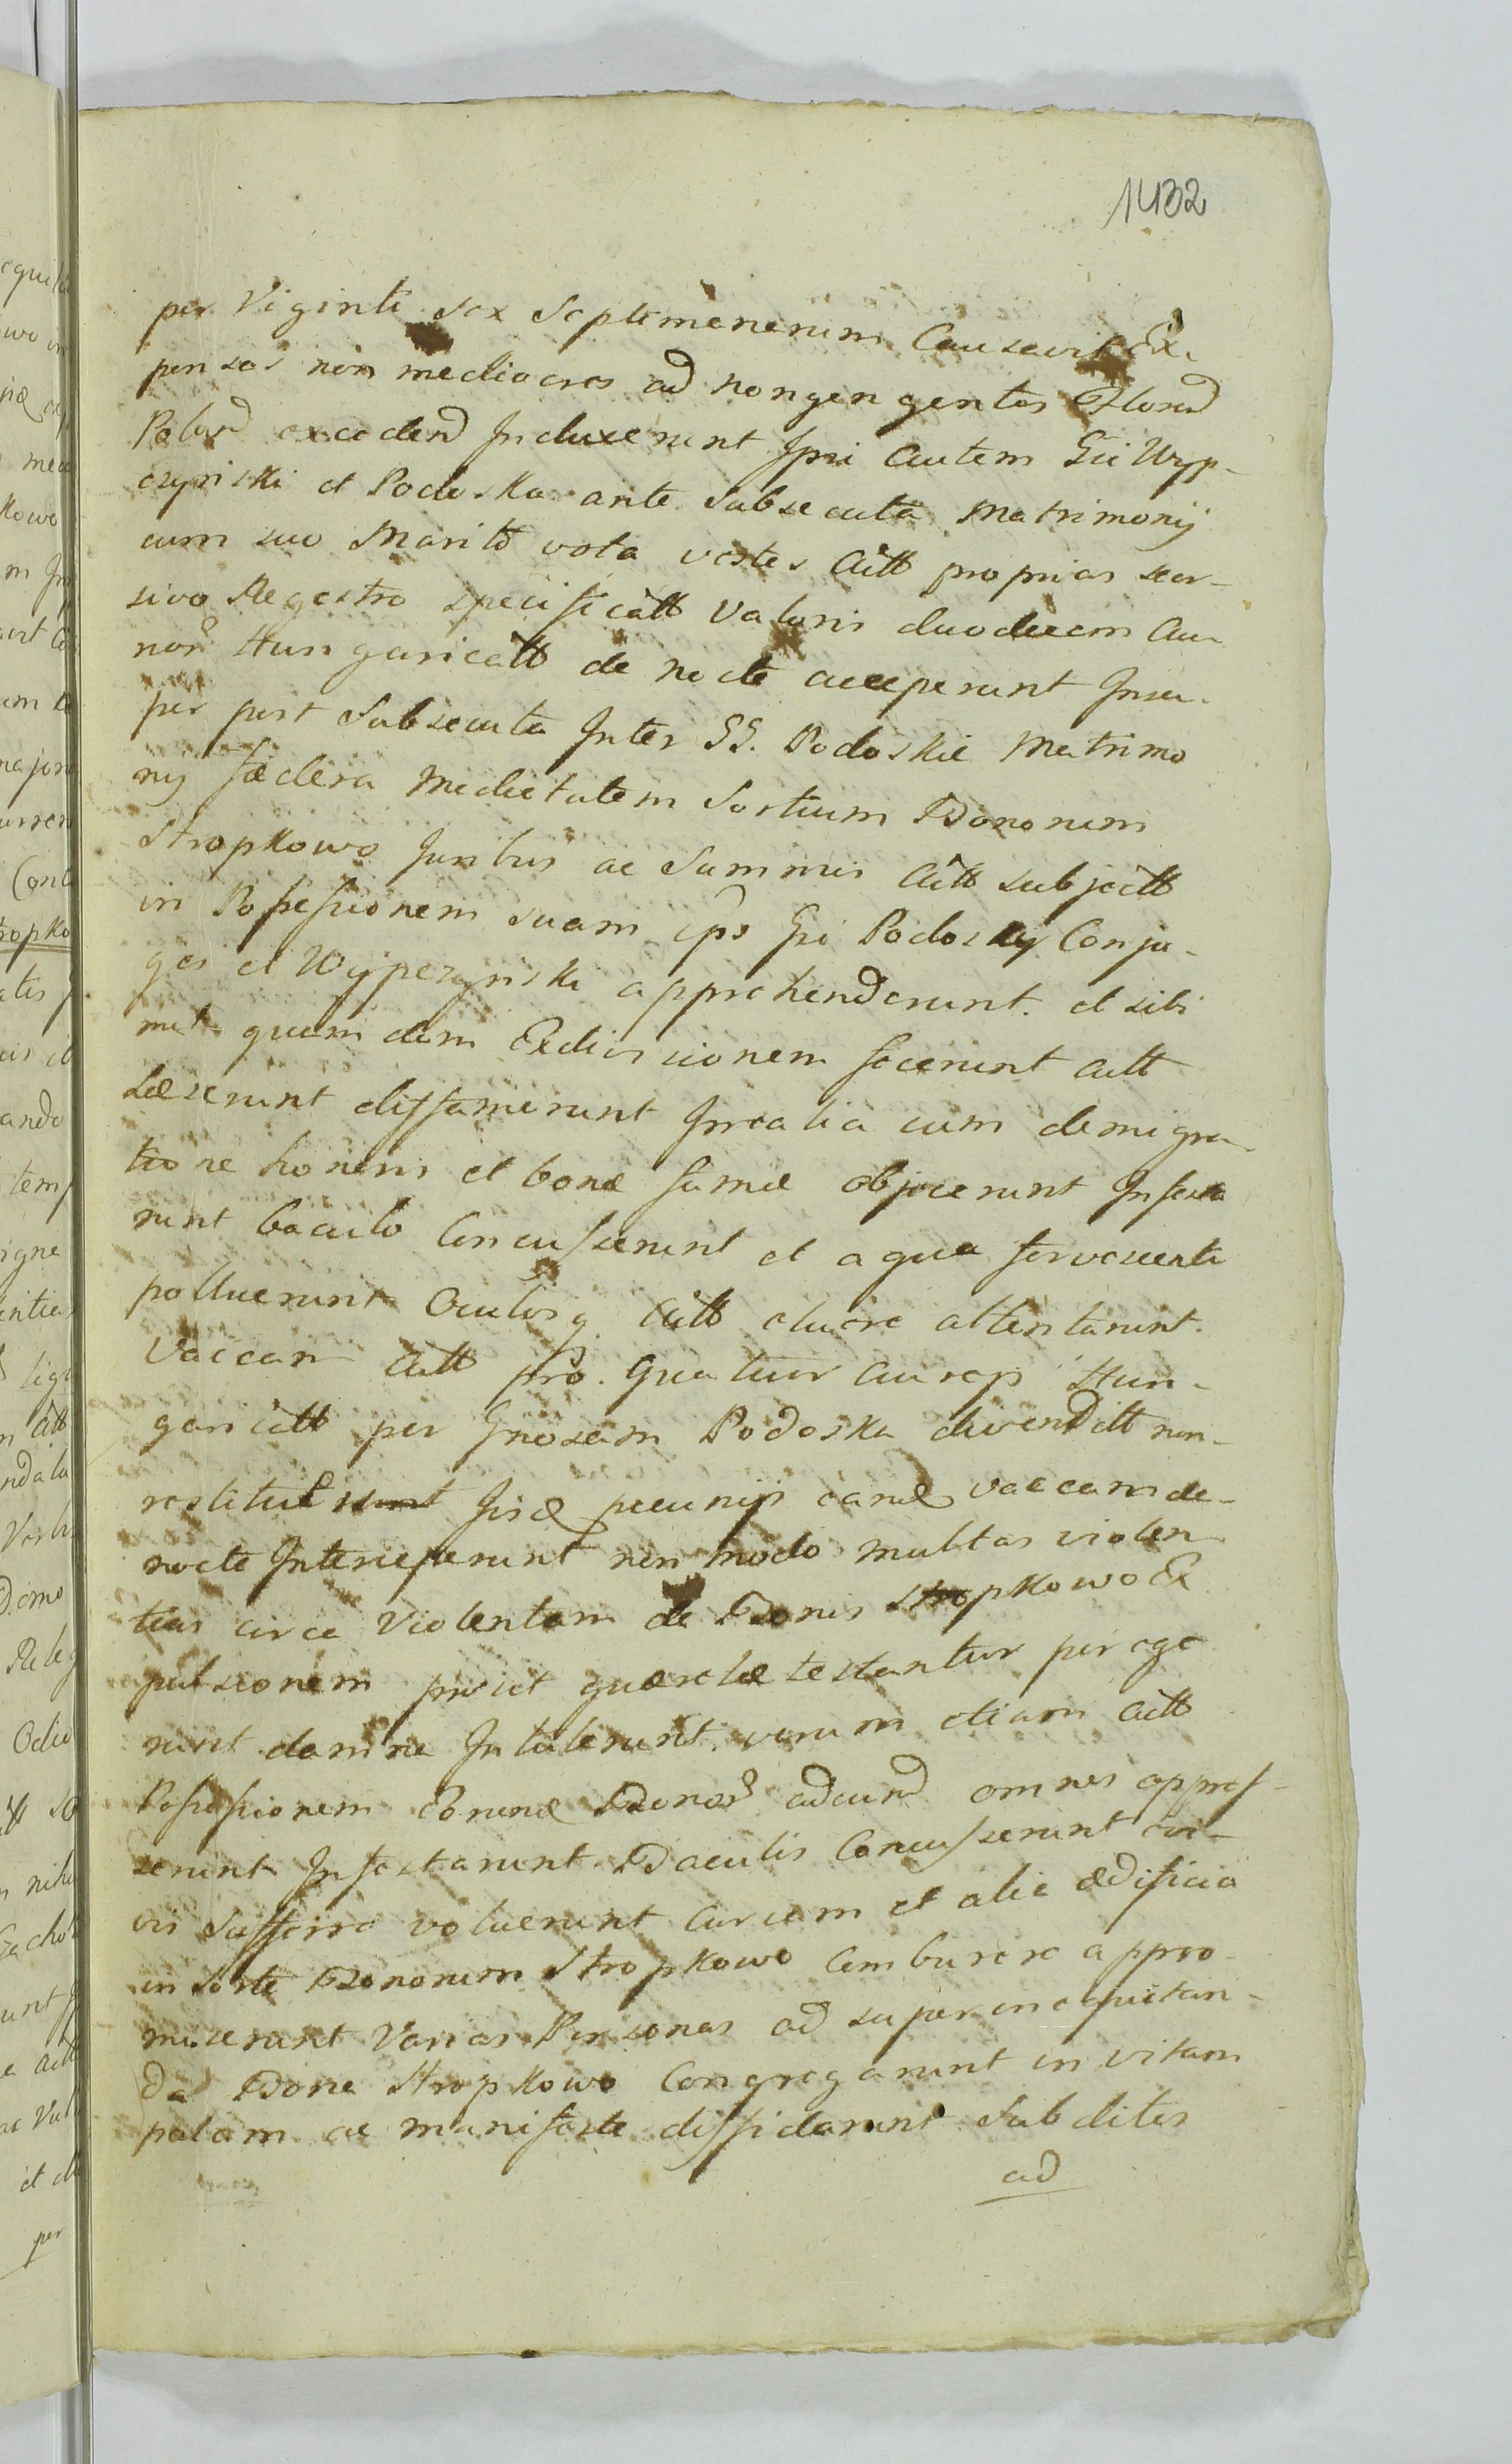 1432
per Viginti sex Septemanarum Causavit Ex-
pensas non mediocres ad nongengentos Floren
Polon exceden Induxerunt Ipsi autem GG Wyp-
czyński et Podoska ante Subsecuta Matrimonij
cum suo Marito vota vestes Actt proprias seor-
sivo Regestro specificatt Valoris duodecim Au-
reor Hungaricatt de nocte acceperunt Insu-
per post Subsecuta Inter GG. Podoskie Matrimo
nij fædera Medietatem Sortium Bonorum
Stropkowo Juribus ac Summis Actt subjectt
in Possessionem suam ips Gsi Podoskij Conju-
ges et Wypczynski apprehenderunt. et sibi
met quamdam Exdivisionem fecerunt Actt
Læserunt diffamerunt Irrealia cum demigra-
tione honoris et bonæ famæ objecerunt Infesta
runt baculo Concusserunt et aqua fervescenti
polluerunt Oculosq Actt eluere attentarunt.
Vaccam Actt pro. quatuor aureis Hun-
garicatt per Gnosam Podoska divenditt non-
restitut Iisd pecuniis eand vaccam de-
nocte Interceperunt non modo multas violen
tias circa Violentam de Bonis Stropkowo Ex
pulsionem prout querelæ testantur perege
runt damna Intulerunt. verum etiam Actt
Possessionem Eorund Bonor adeund omnes oppres-
serunt Infestarunt Baculis Concusserunt
vis Sufferre voluerunt Curiam et alia ædificia
in Sorte Bonorum Stropkowo Comburere appro-
miserunt Varias Personas ad superinequitan-
da Bona Stropkowo Congregarunt in vitam
palam ac manifeste diffidarunt Subditos
ad